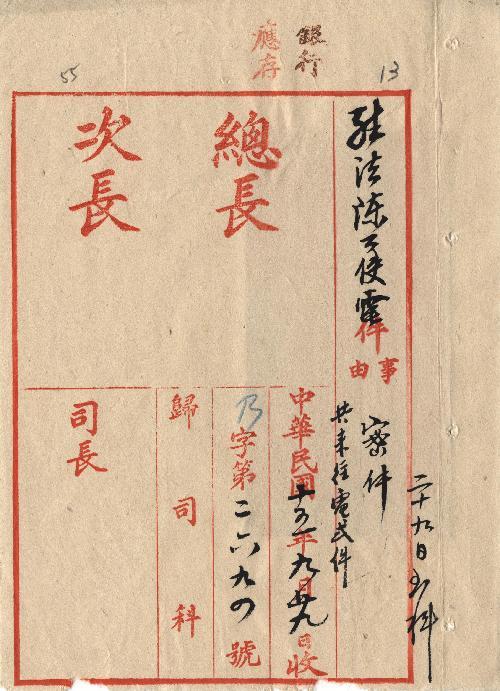 銀行
應存
13
55
二十九日
駐法陳公使電件
事由
密件
共來往電弍件
總長
中華民國十五年九月廿九日收
乃字第二六九四號
歸司科
次長
司長